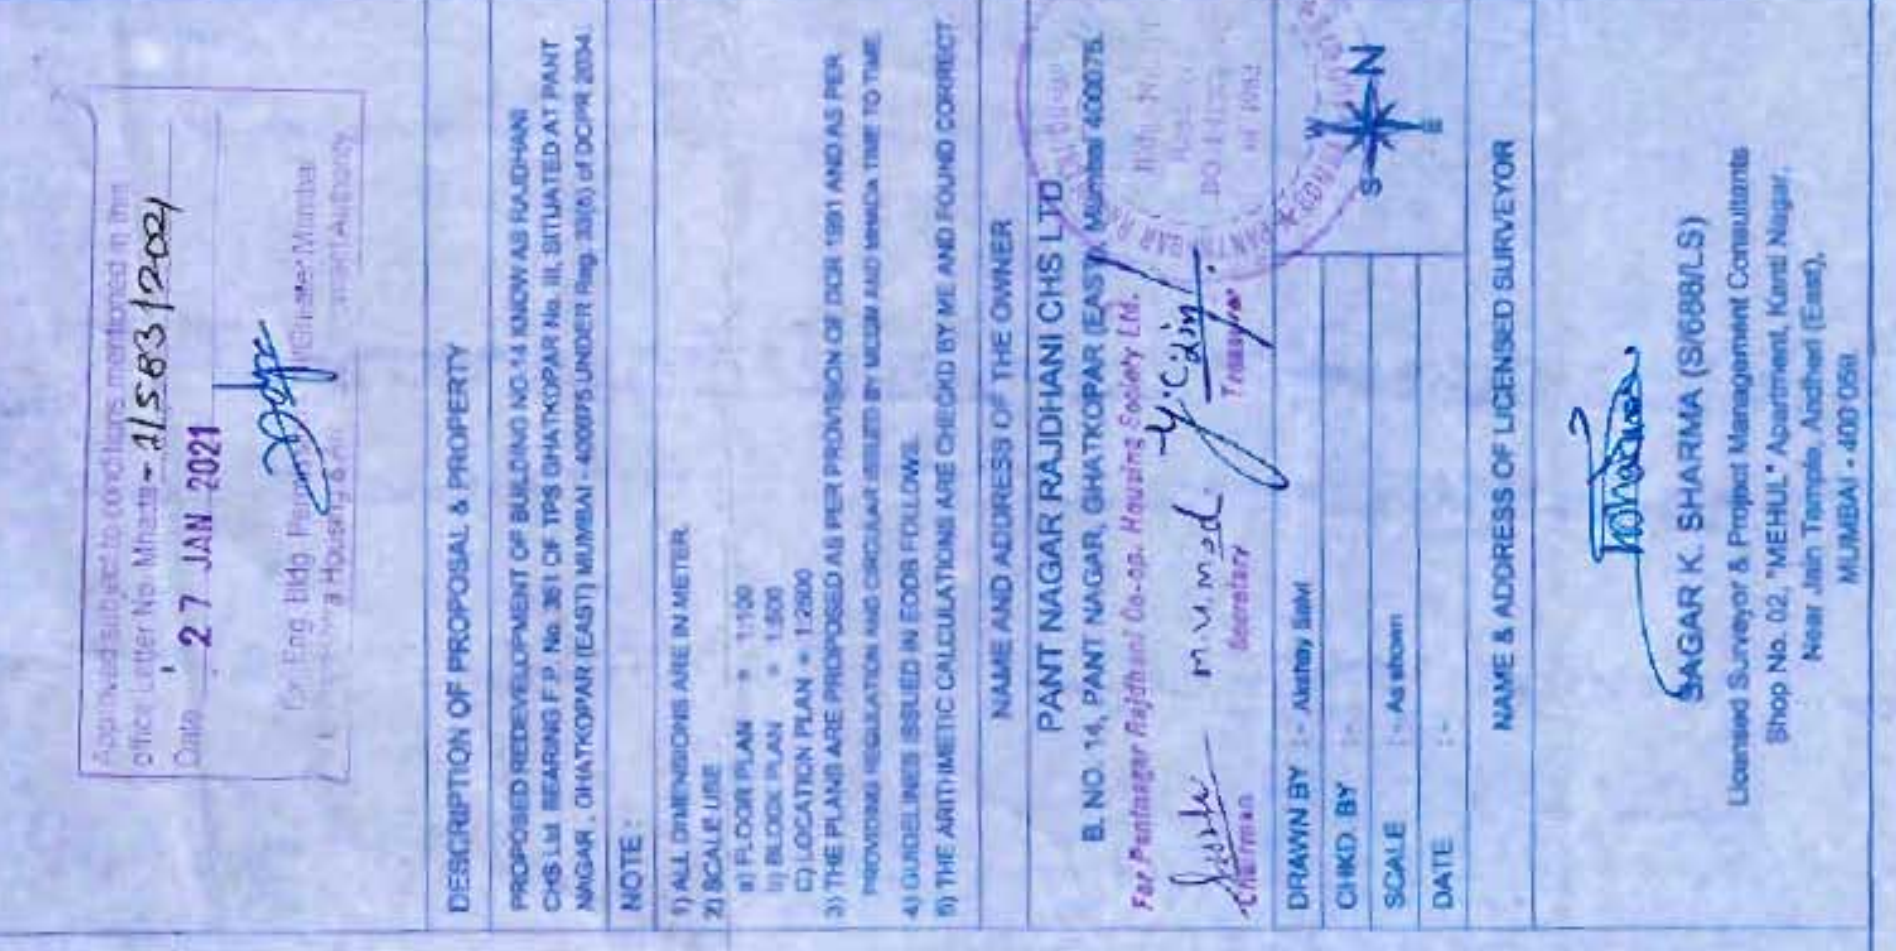 Approved subject to conditions mentioned in this
office Letter No. Mhada - 2/583/2021
Date 27 JAN 2021
Ex. Eng. Bldg. Greater Mumbai
Housing Authority
DESCRIPTION OF PROPOSAL & PROPERTY
PROPOSED REDEVELOPMENT OF BUILDING NO.14 KNOW AS RAJDHANI
CHS Ltd. BEARING F.P. No. 361 OF TPS GHATKOPAR No. III, SITUATED AT PANT
NAGAR , GHATKOPAR (EAST) MUMBAI - 400075 UNDER Reg. 33(5) of DCPR 2034.
NOTE :
1) ALL DIMENSIONS ARE IN METER.
2) SCALE USE
a) FLOOR PLAN = 1:100
b) BLOCK PLAN = 1:500
C) LOCATION PLAN = 1:2000
3) THE PLANS ARE PROPOSED AS PER PROVISION OF DCR 1991 AND AS PER
PROVIDING REGULATION AND CIRCULAR ISSUED BY MCGM AND MHADA TIME TO TIME.
4) GUIDELINES ISSUED IN EODB FOLLOWS.
5) THE ARITHMETIC CALCULATIONS ARE CHECKD BY ME AND FOUND CORRECT
NAME AND ADDRESS OF THE OWNER
PANT NAGAR RAJDHANI CHS LTD
B. NO. 14, PANT NAGAR, GHATKOPAR (EAST), Mumbai 400075.
For Pantnagar Rajdhani Co-op. Housing Society Ltd.
Chairman Secretary Treasurer
DRAWN BY :- Akshay
CHKD. BY :-
SCALE :- As shown
DATE :-
W
S N
E
NAME & ADDRESS OF LICENSED SURVEYOR
SAGAR K. SHARMA (S/688/LS)
Licensed Surveyor & Project Management Consultants
Shop No. 02, "MEHUL" Apartment, Kanti Nagar,
Near Jain Temple, Andheri (East),
MUMBAI - 400 059.